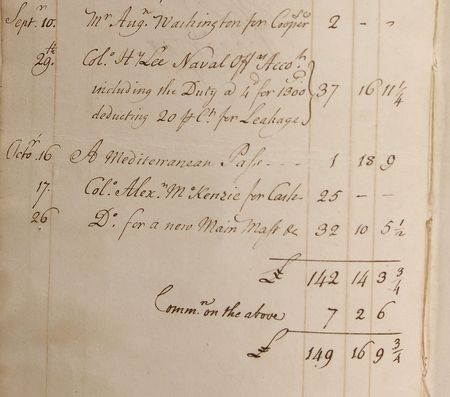 Septr. 10. Mr Augn. Washington for Cooper 2 - -
29th. Colo. Hy Lee Naval Offrs Accot.
including the Duty @ 4d for 1300 37 16 11 1/4
deducting 20 p Ct for Leakage
Octor. 16 A Mediterranean Pass - - - 1 18 9
17. Colo. Alexr. McKenzie for Cask 25 - -
26 Do. for a new Main Mast &c 32 10 5 1/2
£ 142 14 3 3/4
Commn. on the above 7 2 6
£ 149 16 9 3/4